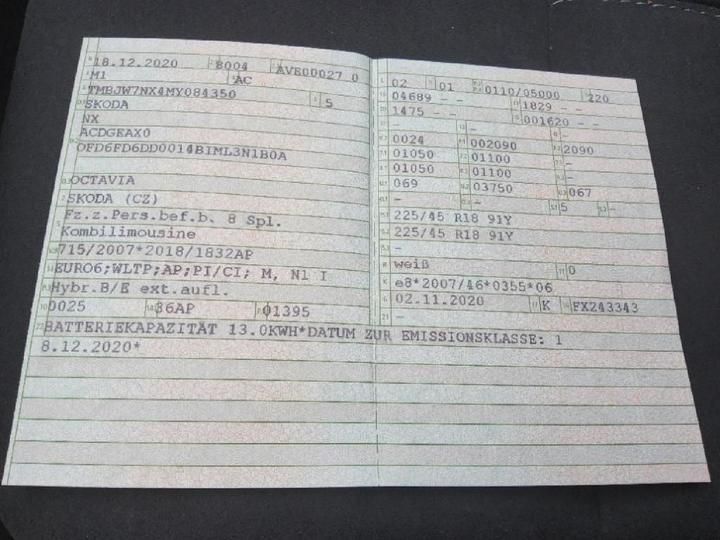 18.12.2020 8004 AVE00027 0
M1 AC
TMBJW7NX4MY084350 5
SKODA
NX
ACDGEAX0
OFD6FD6DD0014BIML3N1B0A
OCTAVIA
SKODA (CZ)
Fz.z.Pers.bef.b. 8 Spl.
Kombilimousine
715/2007*2018/1832AP
EURO6;WLTP;AP;PI/CI; M, N1 I
Hybr.B/E ext.aufl.
0025 36AP 01395
BATTERIEKAPAZITÄT 13.0KWH*DATUM ZUR EMISSIONSKLASSE: 1
8.12.2020*
02 01 0110/05000 220
04689 - - 1829 - -
1475 - - 001620 - -
- - -
0024 002090 2090
01050 01100 -
01050 01100 -
069 03750 067
- - 5 -
225/45 R18 91Y
225/45 R18 91Y
-
weiß 0
e8*2007/46*0355*06
02.11.2020 K FX243343
-